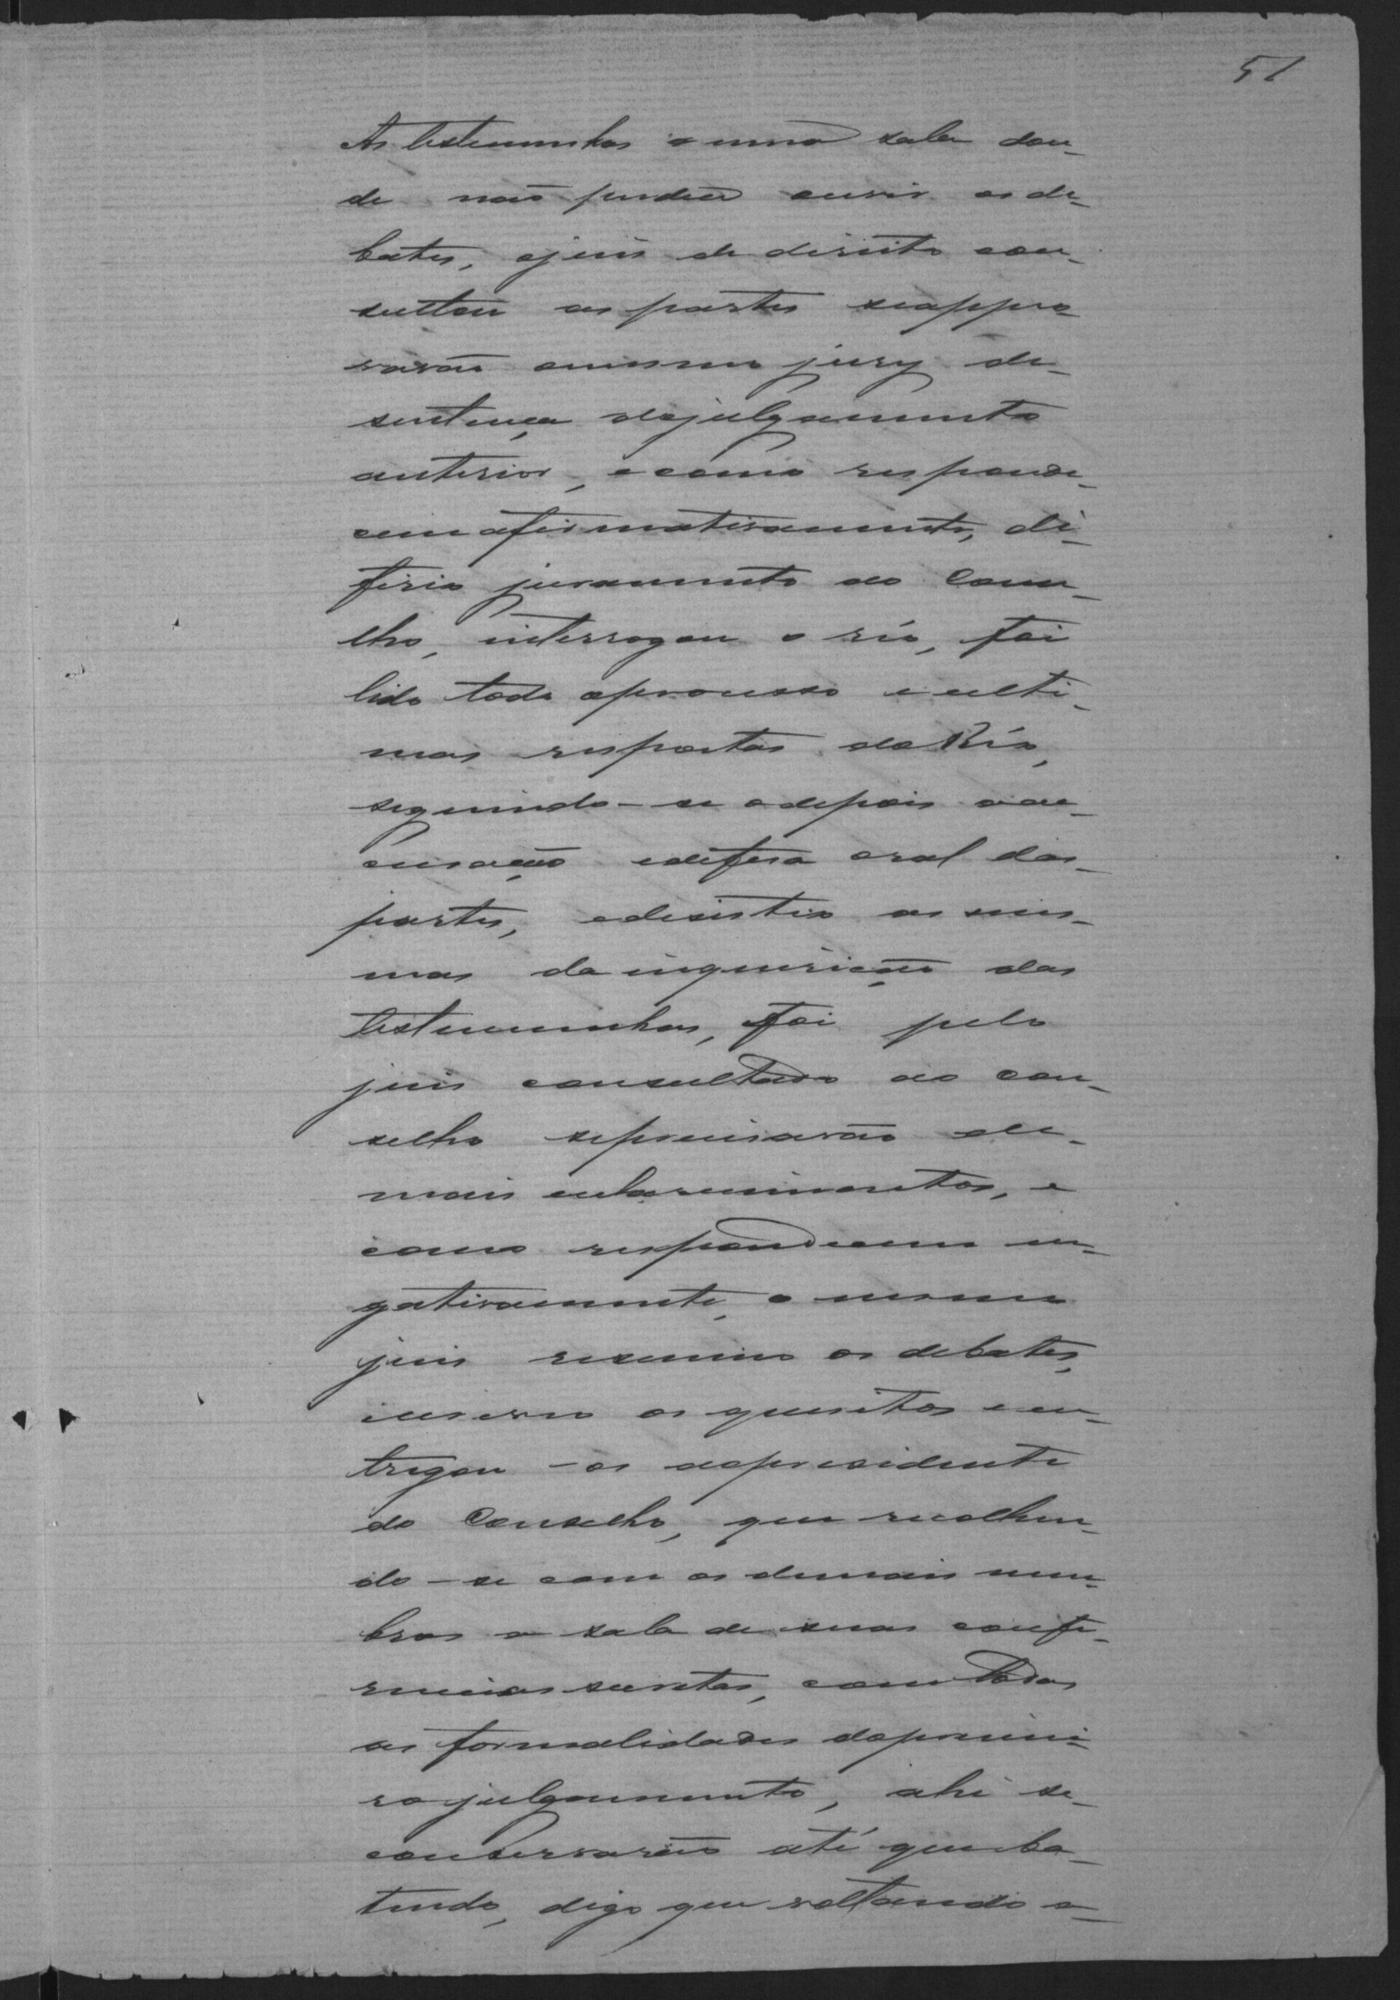 51
As testemunhas a uma sala don-
de não pudeçe ouvir os de-
bates, o juis de direito con-
sultou as partes se appro
vavão o mesmo jury de-
sentença do julgamento
anterior, e como responde-
cem afirmativamente, di-
firio juramento ao Conse-
lho, interrogou o réo, foi
lido todo o processo e ulti-
mas respostas do Réo,
seguindo-se a depois a ac-
cusação e defesa oral das-
partes, e desistio as mes-
mas da inquirição das
testemunhas, foi pelo
juis consultado ao con-
selho se precisavão de-
mais esclarecimentos, e
como respondecem ne-
gativamente, o mesmo
juis resumio os debates,
escreveo os quesitos e en-
tregou-os ao presidente
do Conselho, que recolhen-
do-se com os demais mem-
bros a sala de suas confe-
rencias secretas, com todas
as formalidades do primei-
ro julgamento, ahi se-
conservarão até que ba-
tendo, digo que voltando a-